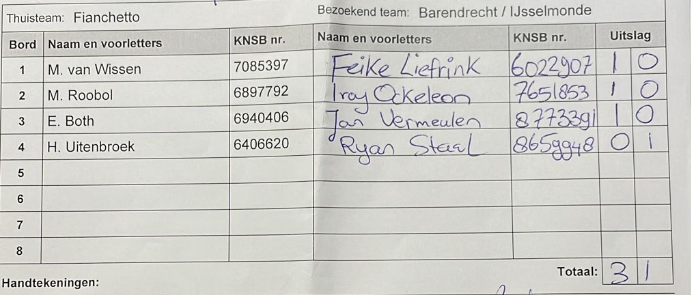 Thuisteam: Fianchetto Bezoekend team: Barendrecht / IJsselmonde
Bord Naam en voorletters KNSB nr. Naam en voorletters KNSB nr. Uitslag
1 M. van Wissen 7085397 Feike Liefrink 6022907 1 0
2 M. Roobol 6897792 Iray Ockeleon 7651853 1 0
3 E. Both 6940406 Jan Vermeulen 8773391 1 0
4 H. Uitenbroek 6406620 Ryan Staal 8659948 0 1
5
6
7
8
Totaal: 3 1
Handtekeningen: